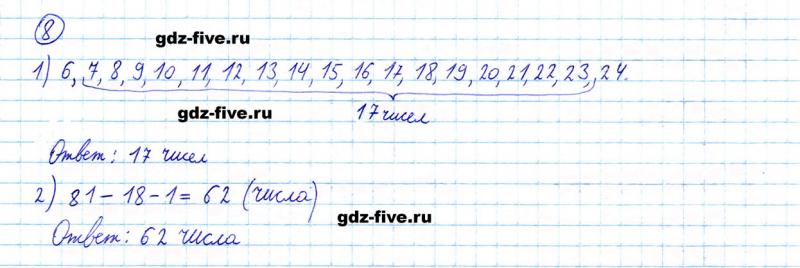 8
gdz-five.ru
1) 6, 7, 8, 9, 10, 11, 12, 13, 14, 15, 16, 17, 18, 19, 20, 21, 22, 23, 24.
gdz-five.ru
17 чисел
Ответ: 17 чисел
2) 81 - 18 - 1 = 62 (числа)
gdz-five.ru
Ответ: 62 числа